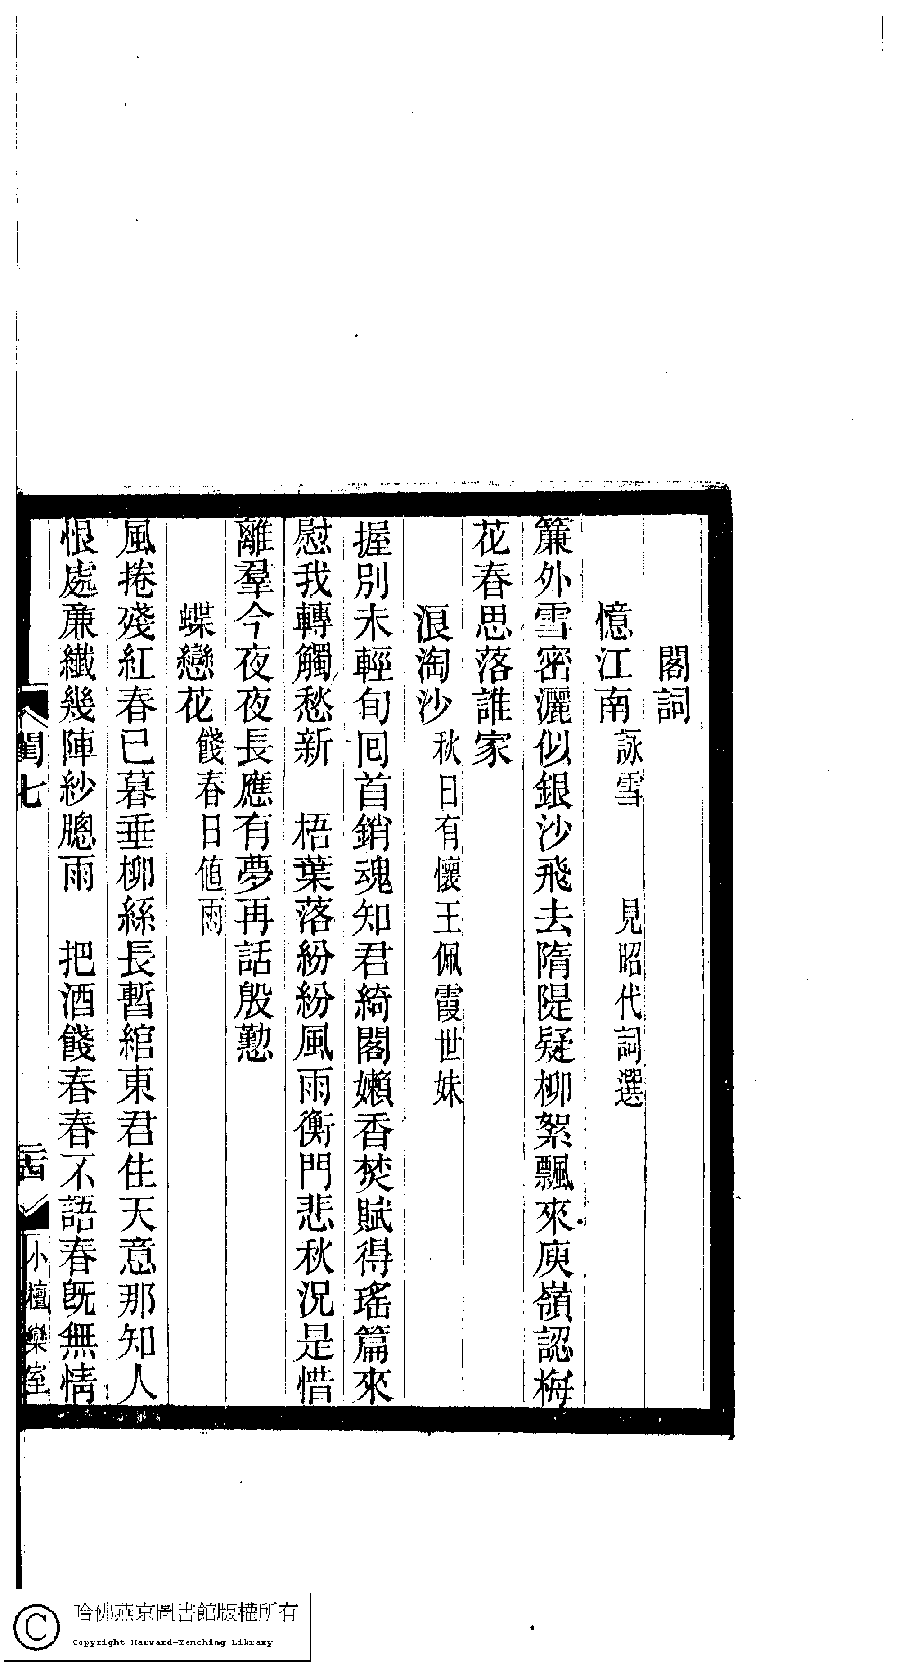 閣詞
憶江南 詠雪 見昭代詞選
簾外雪密灑似銀沙飛去隋隄疑柳絮飄來庾嶺認梅
花春思落誰家
浪淘沙 秋日有懷王佩霞世妹
握別未輕旬回首銷魂知君綺閣嬾香焚賦得瑤篇來
慰我轉觸愁新 梧葉落紛紛風雨衡門悲秋況是惜
離羣今夜夜長應有夢再話殷懃
蝶戀花 餞春日値雨
風捲殘紅春已暮垂柳絲長暫綰東君住天意那知人
恨處廉纖幾陣紗牕雨 把酒餞春春不語春旣無情
閨七
小檀欒室
哈佛燕京圖書館版權所有
Copyright Harvard-Yenching Library